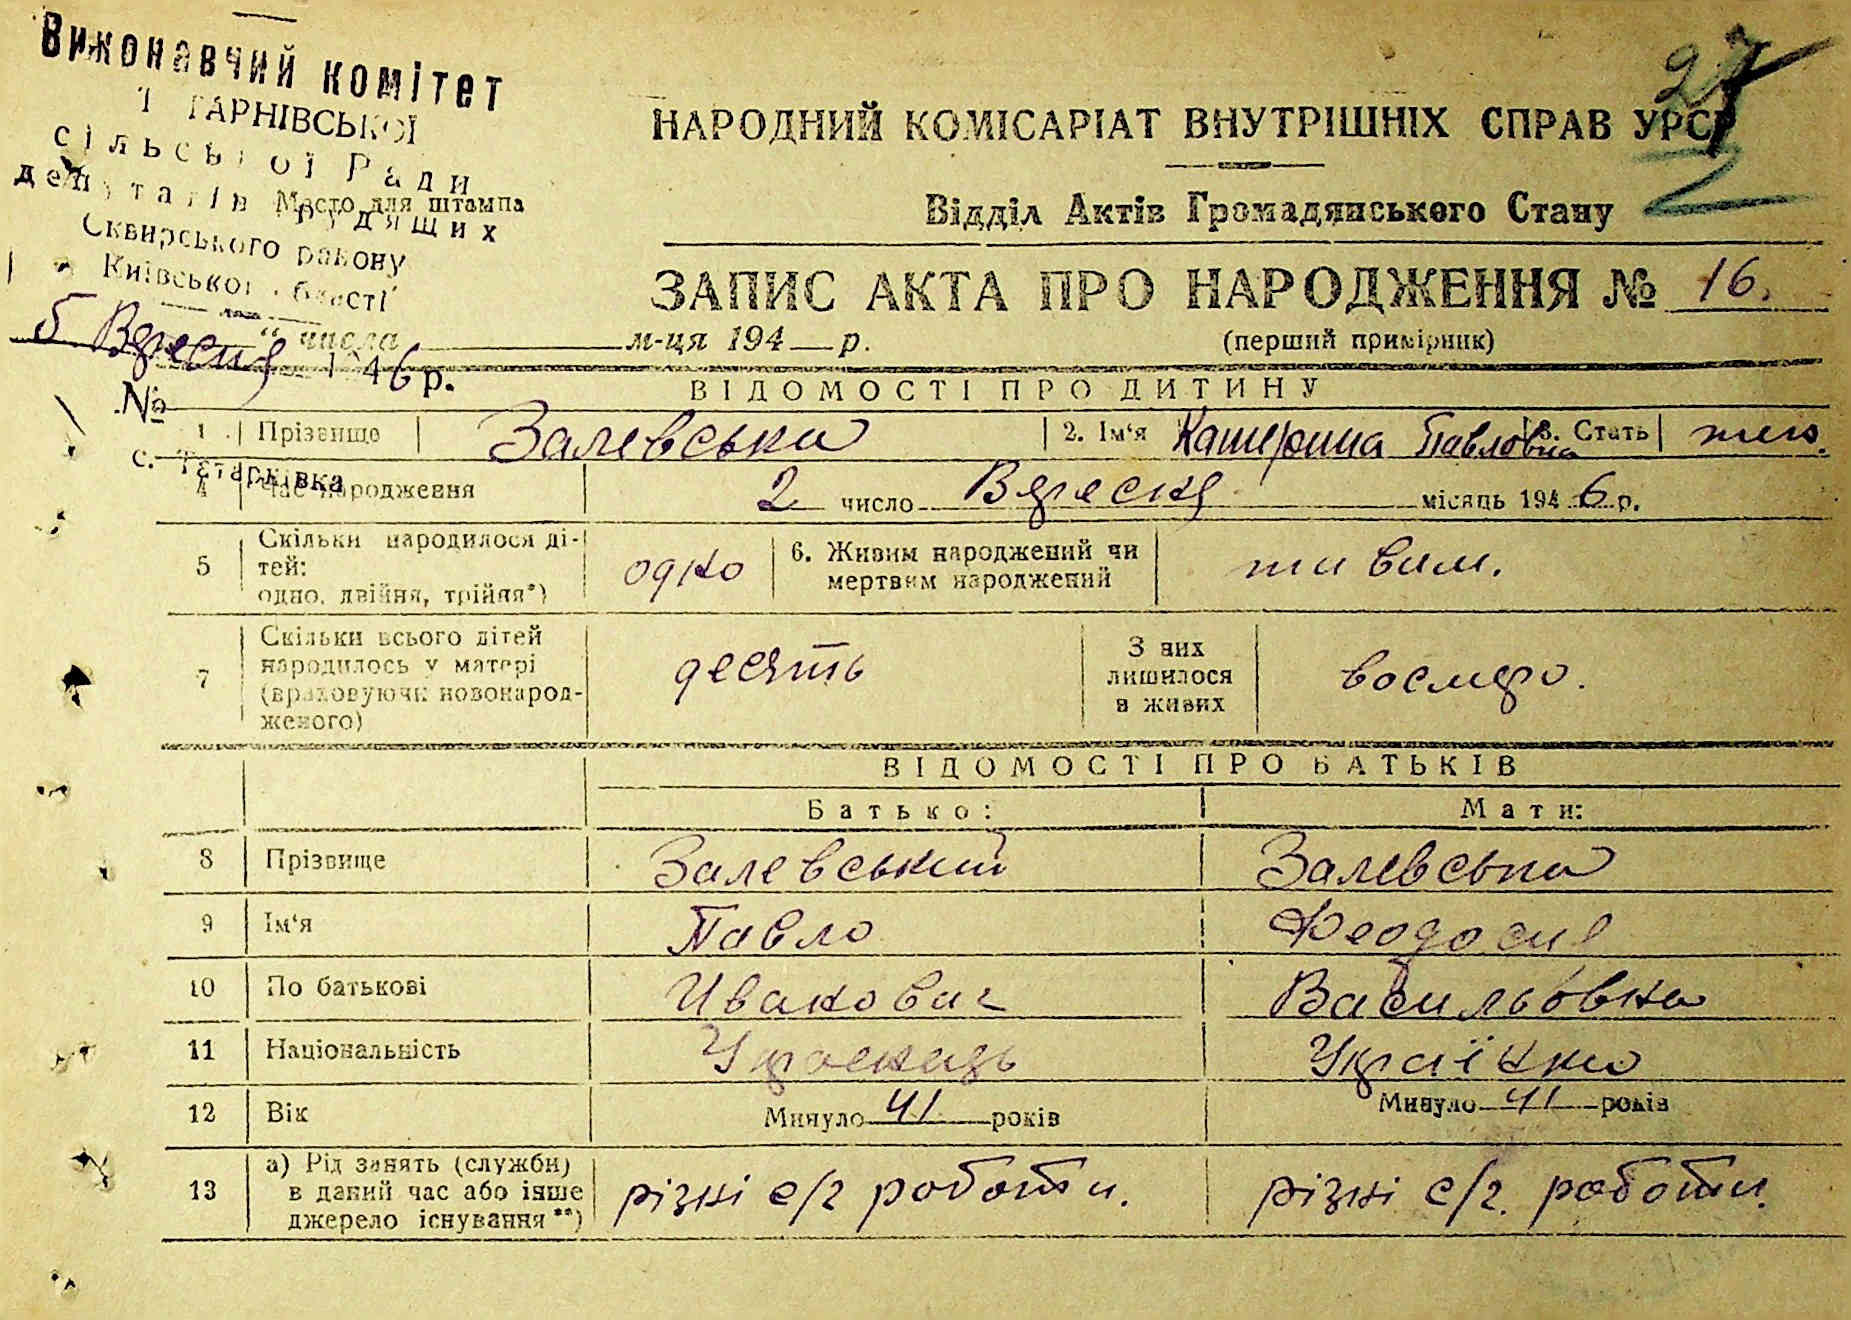 Виконавчий комітет
сільської Ради
депутатів трудящих
Місто для штампа
Сквирського району
Київської області
5 Вересня 1946 р.
„ “ числа м-ця 194 р.
№
с. Татарківка
27
2
НАРОДНИЙ КОМІСАРІАТ ВНУТРІШНІХ СПРАВ УРСР
Відділ Актів Громадянського Стану
ЗАПИС АКТА ПРО НАРОДЖЕННЯ № 16.
(перший примірник)
ВІДОМОСТІ ПРО ДИТИНУ
1 Прізвище Залевська 2. Ім‘я Катерина Павловна 3. Стать жін.
4 Час народження 2 число Вересня місяць 1946 р.
5 Скільки народилося ді-
тей:
одно, двійня, трійня*) одно
6. Живим народжений чи
мертвим народжений живим.
7 Скільки всього дітей
народилось у матері
(враховуючи новонарод-
женого) десять
З них
лишилося
в живих восмеро.
ВІДОМОСТІ ПРО БАТЬКІВ
Батько: Мати:
8 Прізвище Залевський Залевська
9 Ім‘я Павло Феодосия
10 По батькові Иванович Васильовна
11 Національність Українець Українка
12 Вік Минуло 41 років Минуло 41 років
13 а) Рід занять (служби)
в даний час або інше
джерело існування**) різні с/г роботи. різні с/г. роботи.